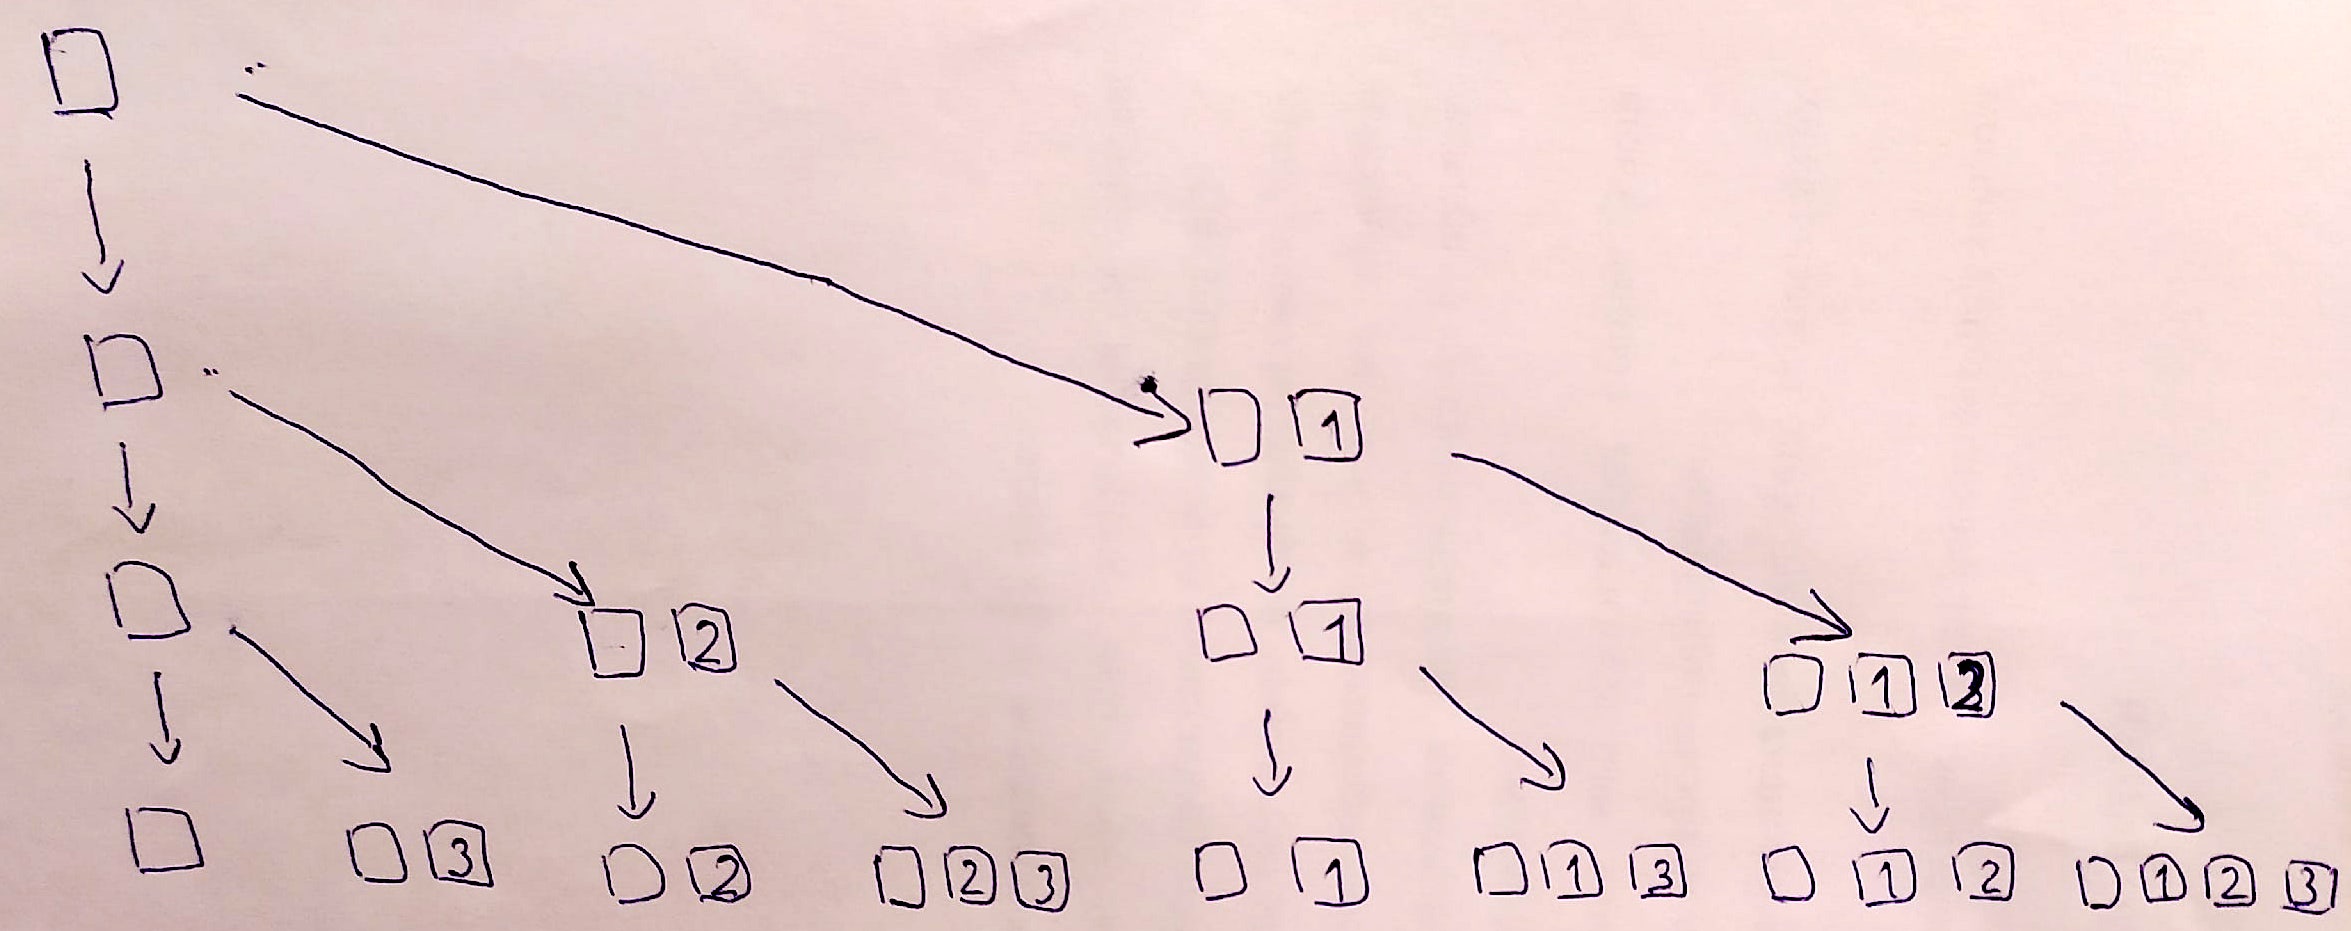 1
2
1
1 2
3
2
2 3
1
1 3
1 2
1 2 3